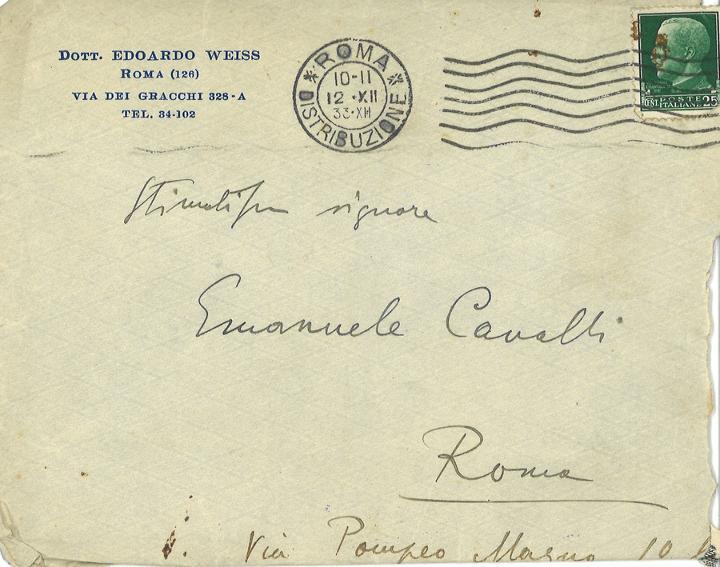 DOTT. EDOARDO WEISS
ROMA (126)
VIA DEI GRACCHI 328-A
TEL. 34-102
ROMA
10-11
12 ·XII
33·XII
DISTRIBUZIONE
POSTE
ITALIANE 25
signore
Emanuele Cavalli
Roma
Via Pompeo Magno 10